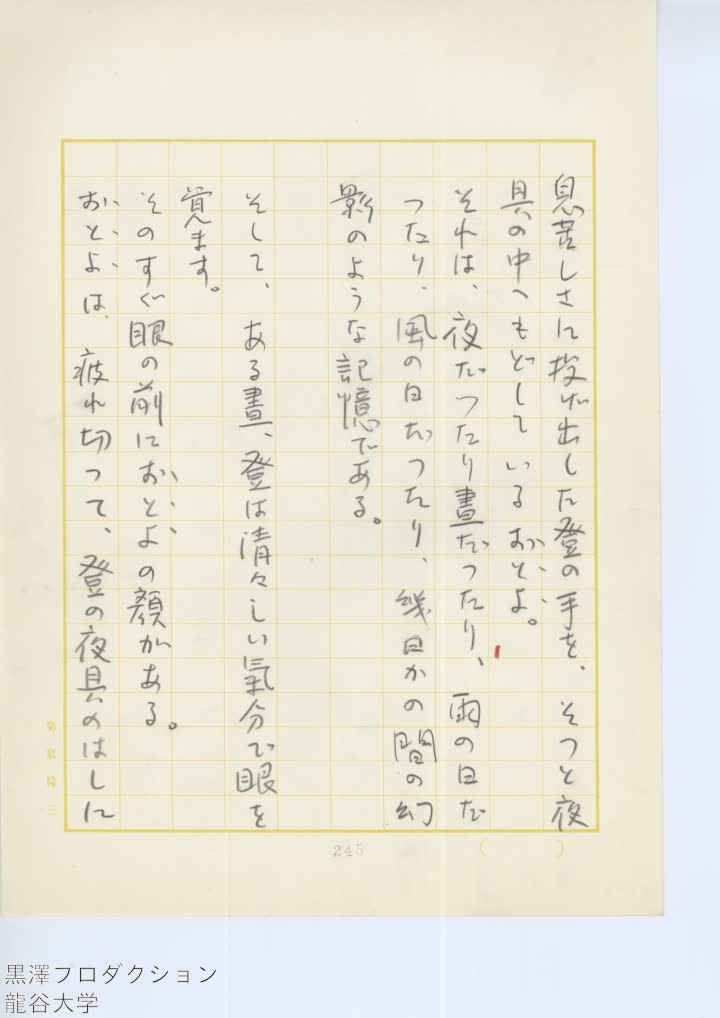 息苦しさに投げ出した登の手を、そつと夜
具の中へもどしているおとよ。
それは、夜だつたり晝だつたり、雨の日だ
つたり、風の日だつたり、幾日かの間の幻
影のような記憶である。
そして、ある晝、登は清々しい氣分で眼を
覚ます。
そのすぐ眼の前におとよの顔がある。
おとよは、疲れ切つて、登の夜具のはしに
245
( )
菊島隆三
黒澤プロダクション
龍谷大学